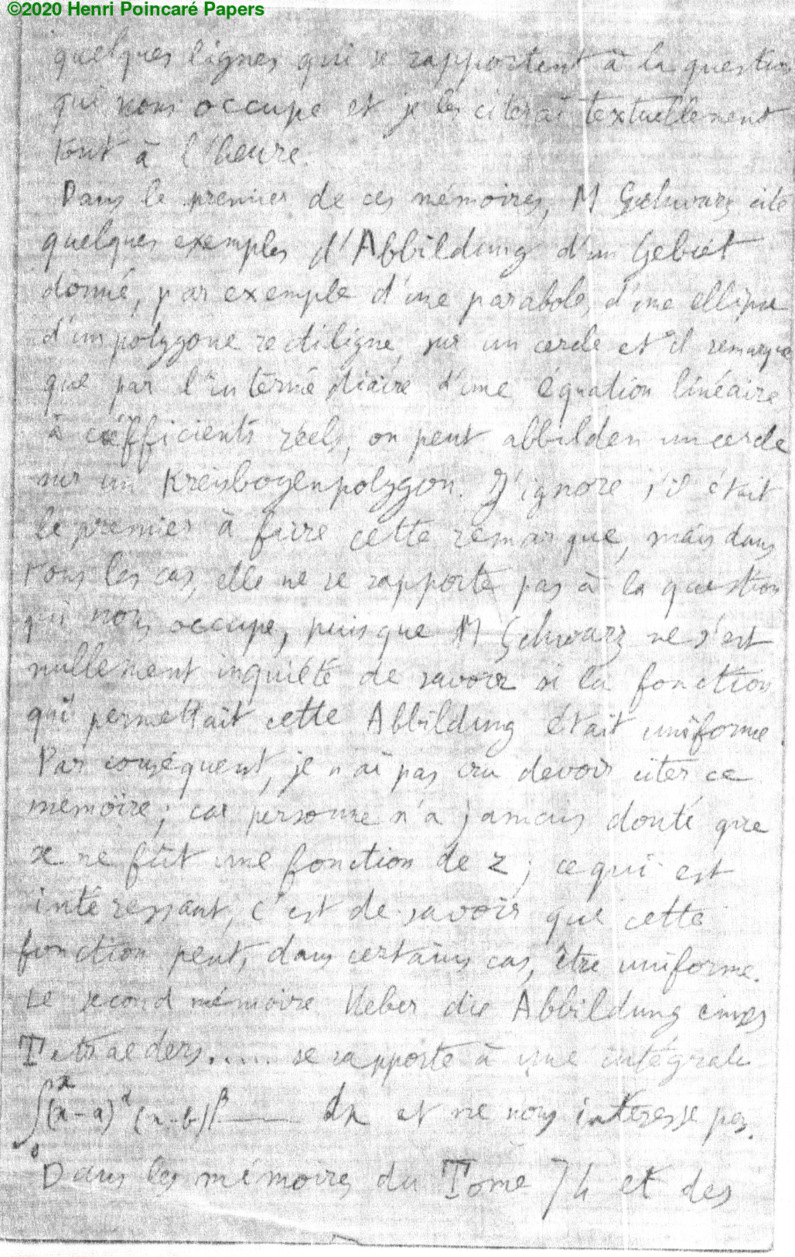 ©2020 Henri Poincaré Papers
quelques lignes qui se rapportent à la question
qui nous occupe et je les citerai textuellement
tout à l'heure.
Dans le premier de ces mémoires, M Schwarz cite
quelques exemples d'Abbildung d'un Gebiet
donné, par exemple d'une parabole, d'une ellipse
d'un polygone rectiligne, sur un cercle et il remarque
que par l'intermédiaire d'une équation linéaire
à coëfficients réels, on peut abbilden un cercle
sur un Kreisbogenpolygon. J'ignore s'il était
le premier à faire cette remarque, mais dans
tous les cas, elle ne se rapporte pas à la question
qui nous occupe, puisque M Schwarz ne s'est
nullement inquiété de savoir si la fonction
qui permettait cette Abbildung était uniforme.
Par conséquent, je n'ai pas cru devoir citer ce
mémoire; car personne n'a jamais douté que
x ne fût une fonction de z; ce qui est
intéressant, c'est de savoir que cette
fonction peut, dans certains cas, être uniforme.
Le second mémoire Ueber die Abbildung eines
Tetraeders..... se rapporte à une intégrale
∫₀ˣ (x-a)^α (x-b)^β —— dx et ne nous intéresse pas.
Dans les mémoires du Tome 74 et des